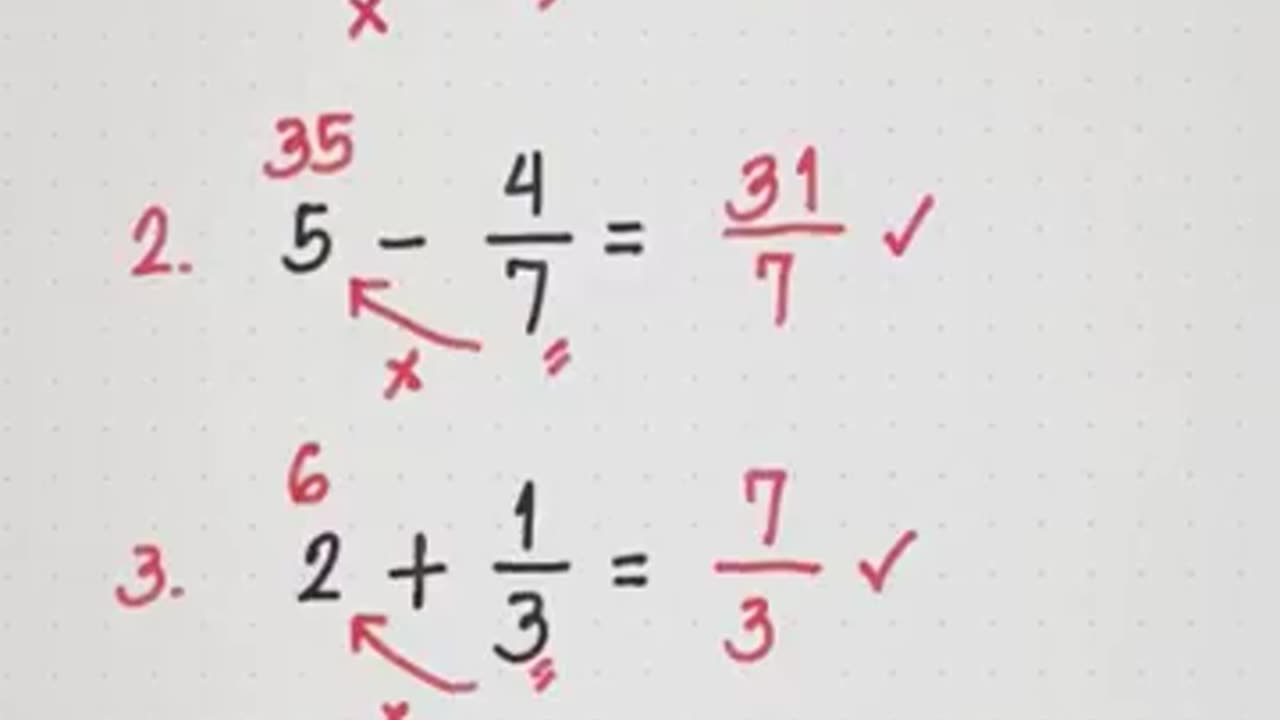 x
35
2. 5 - 4/7 = 31/7 ✓
x
6
3. 2 + 1/3 = 7/3 ✓
x